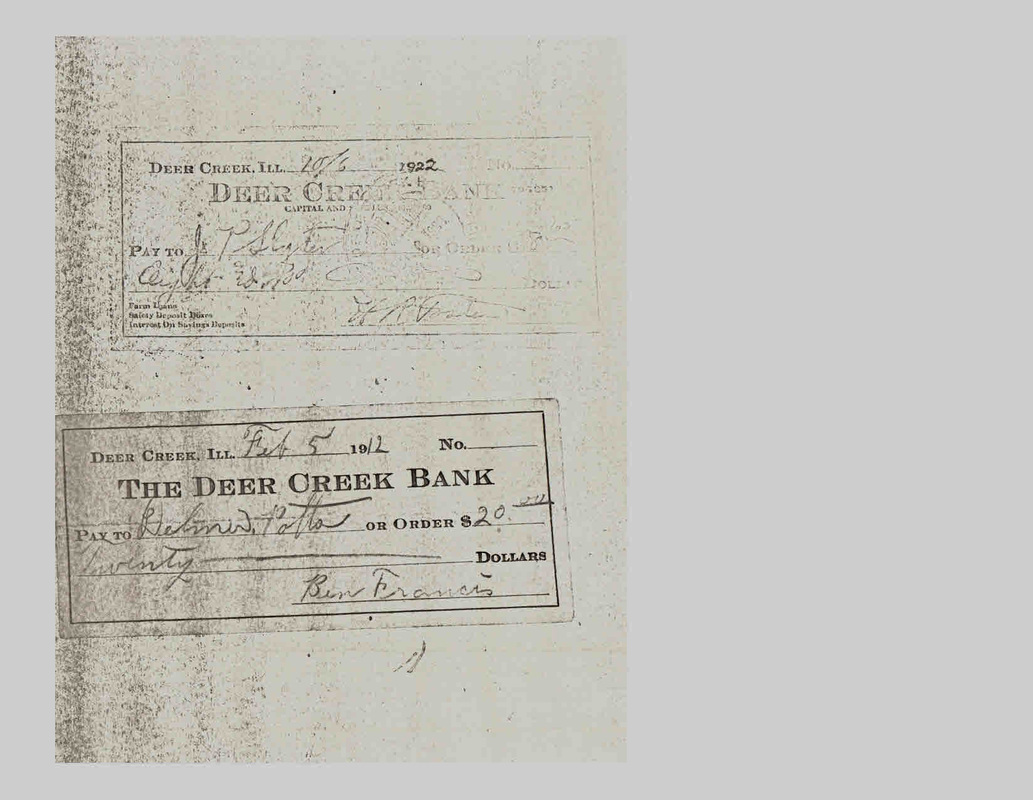 DEER CREEK, ILL. 10/6 1922 No.
DEER CREEK BANK
CAPITAL AND
PAY TO J. P. Slyter OR ORDER
Eight &
DOLLARS
Farm Loans
Safety Deposit Boxes
Interest On Savings Deposits
DEER CREEK, ILL. Feb 5 1912 No.
THE DEER CREEK BANK
PAY TO Potts OR ORDER $20.00
Twenty DOLLARS
Ben Francis